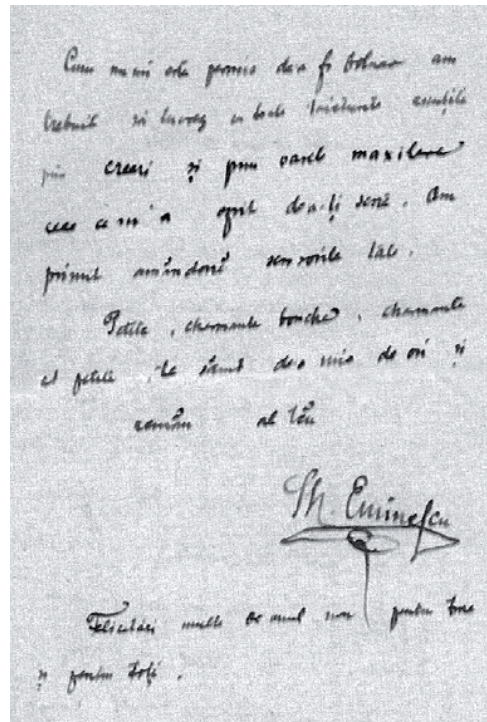 Cum nu mi este permis de a fi bolnav am
trebuit să lucrez cu toate
prin creeri și prin oasele maxilare
ceea ce m'a oprit de a-ți scrie. Am
primit amândouă scrisorile tale.
Petite, charmante bouche, charmante
et petite, te sărut de o mie de ori și
român al tău
M. Eminescu
Felicitări multe de anul nou pentru tine
și pentru toți.